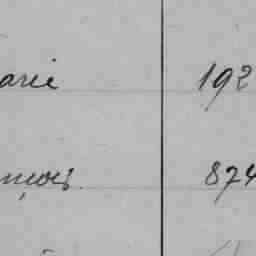 arie 192
nçois 874